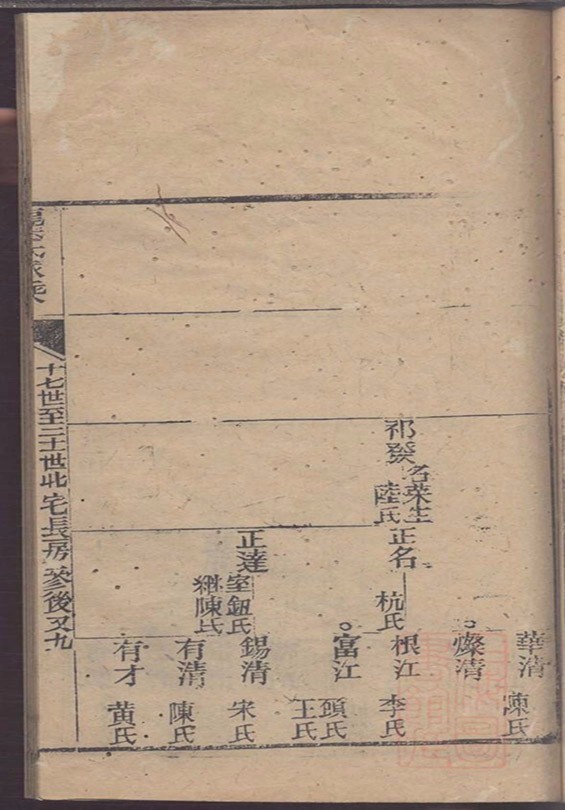 祁發 名榮生
陸氏
正名
杭氏
正達 室鈕氏
繼陳氏
華清 陳氏
燦清
根江 李氏
富江 頭氏
王氏
錫清 宋氏
有清 陳氏
有才 黃氏
十七世至二十世北宅長房 叅後又九